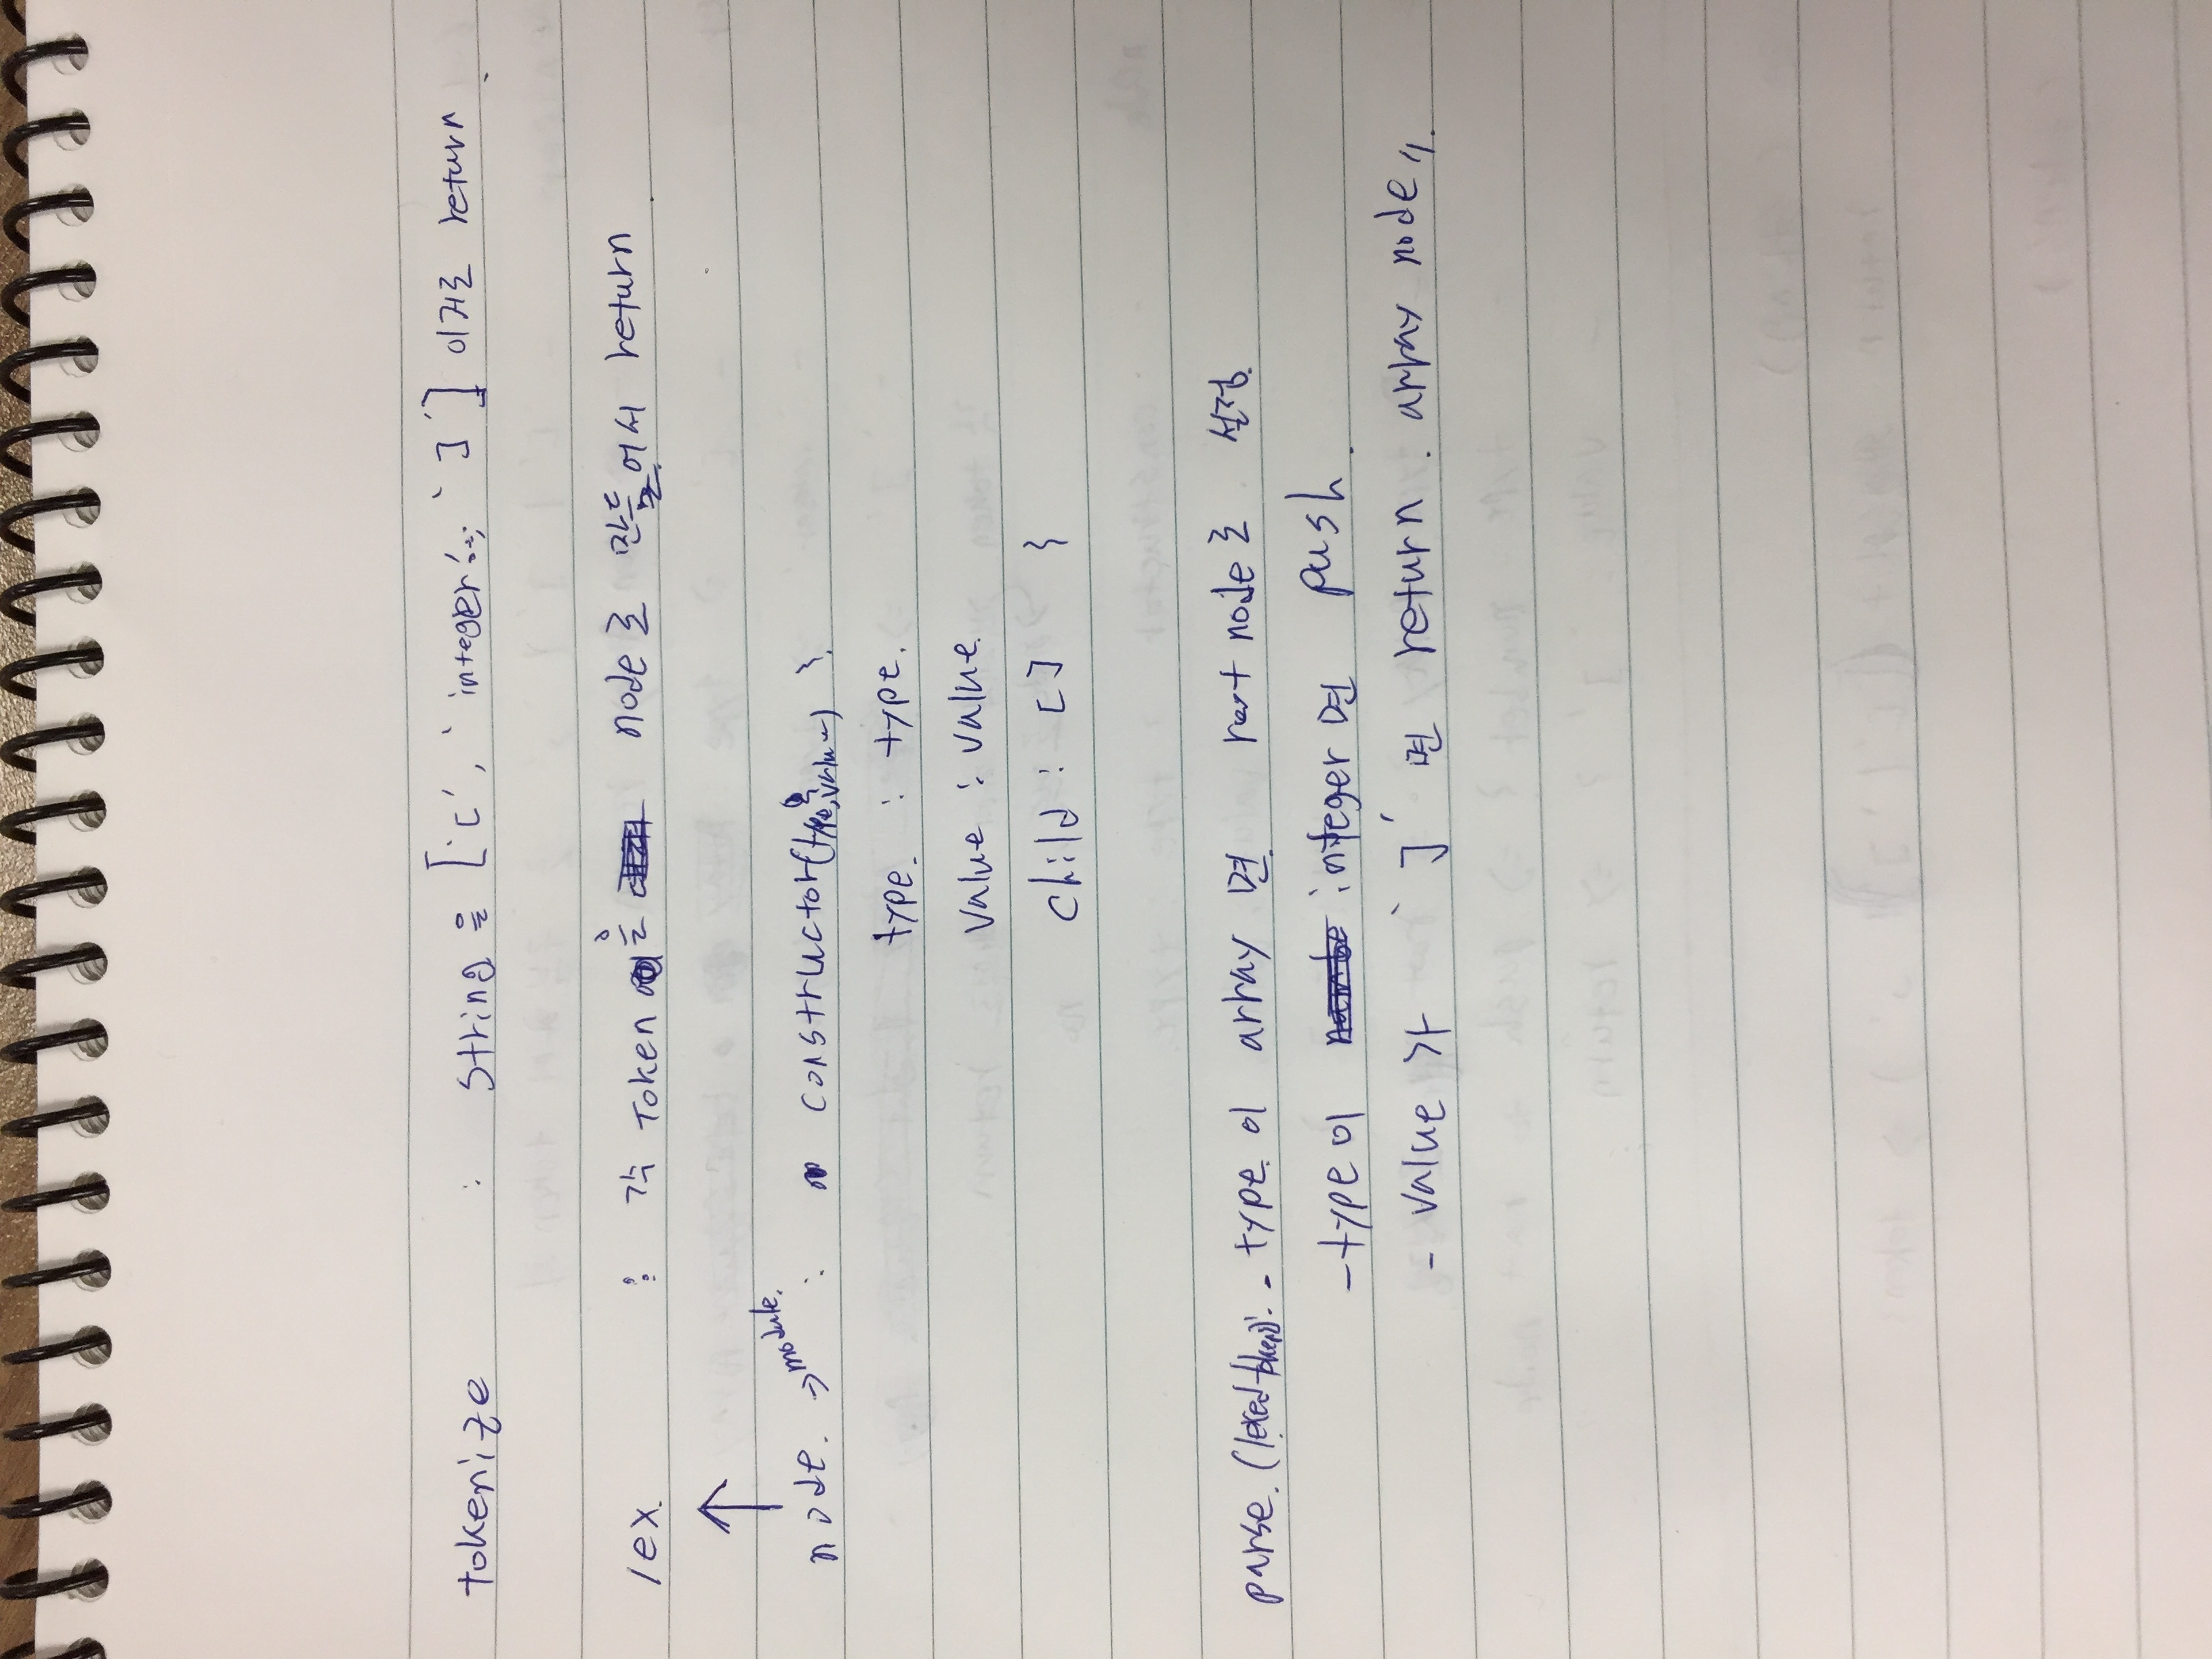 tokenize : string을 ['[', 'integer', ... ']'] 이거로 return.
lex. : 각 Token 을 node로 만들어서 return.
↑
node. → module. : constructor(type, value) {
type. : type.
value : value.
child : [] }
parse. (lexed token): - type이 array 면 root node로 설정.
- type이 integer면 push.
- value가 ']' 면 return. array node 〃.